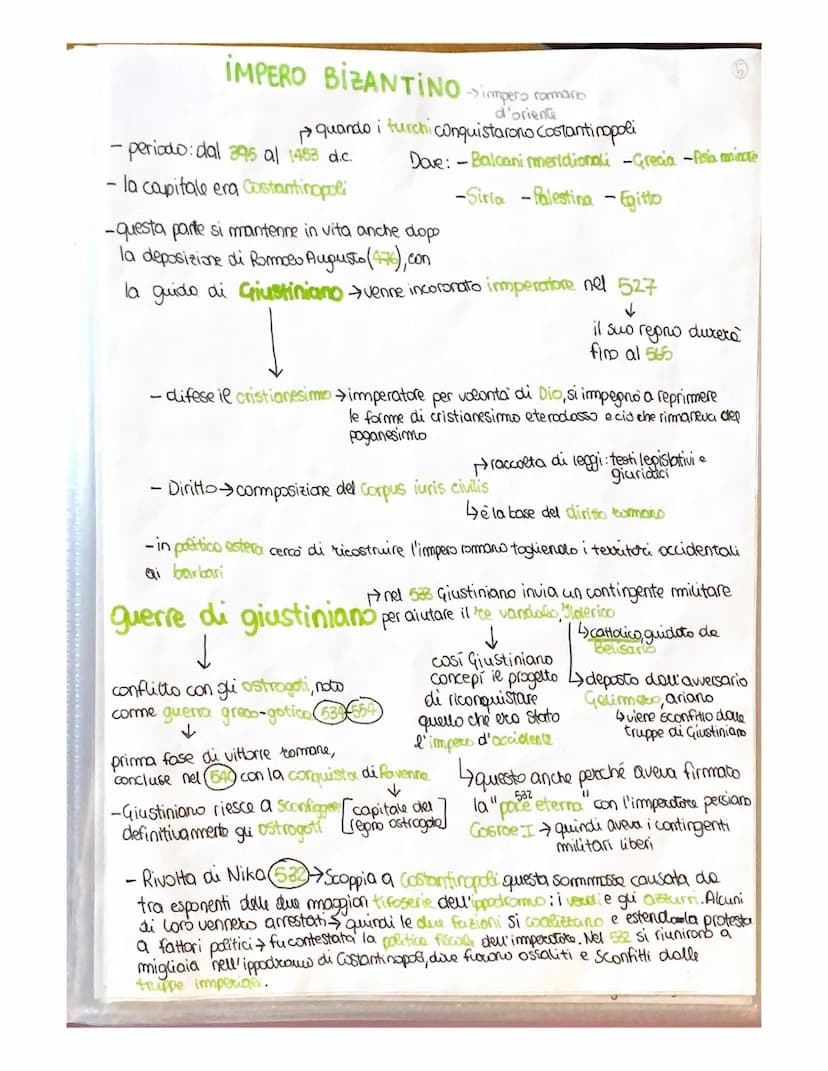 IMPERO BIZANTINO → impero romano
d'oriente
↱ quando i turchi conquistarono Costantinopoli
- periodo: dal 395 al 1453 d.c.
Dove: - Balcani meridionali - Grecia - Asia minore
- la capitale era Costantinopoli
- Siria - Palestina - Egitto
- questa parte si mantenne in vita anche dopo
la deposizione di Romolo Augusto (476), con
la guida di Giustiniano → venne incoronato imperatore nel 527
il suo regno durerà
fino al 565
- difese il cristianesimo → imperatore per volontà di Dio, si impegnò a reprimere
le forme di cristianesimo eterodosso e ciò che rimaneva del
paganesimo
↱ raccolta di leggi: testi legislativi e
giuridici
- Diritto → composizione del Corpus iuris civilis
↳ è la base del diritto romano
- in politica estera cercò di ricostruire l'impero romano togliendo i territori occidentali
ai barbari
↱ nel 533 Giustiniano invia un contingente militare
guerre di giustiniano per aiutare il re vandalo, Ilderico
↳ cattolico, guidato da
Belisario
così Giustiniano
concepì il progetto
di riconquistare
quello che era stato
l'impero d'occidente
↳ deposto dall'avversario
Gelimero, ariano
↳ viene sconfitto dalle
truppe di Giustiniano
conflitto con gli ostrogoti, noto
come guerra greco-gotica 534-554
prima fase di vittorie romane,
concluse nel 540 con la conquista di Ravenna
[capitale del
regno ostrogoto]
- Giustiniano riesce a sconfiggere
definitivamente gli ostrogoti
↳ questo anche perché aveva firmato
532
la "pace eterna" con l'imperatore persiano
Cosroe I → quindi aveva i contingenti
militari liberi
- Rivolta di Nika 532 → Scoppia a Costantinopoli questa sommossa causata da
tra esponenti delle due maggiori tifoserie dell'ippodromo: i verdi e gli azzurri. Alcuni
di loro vennero arrestati → quindi le due fazioni si coalizzano e estendono la protesta
a fattori politici → fu contestata la politica fiscale dell'imperatore. Nel 532 si riunirono a
migliaia nell'ippodromo di Costantinopoli, dove furono assaliti e sconfitti dalle
truppe imperiali.